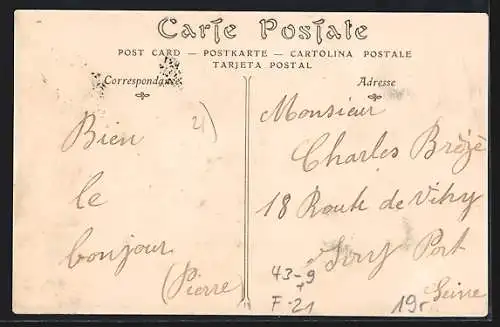 Carte Postale
POST CARD — POSTKARTE — CARTOLINA POSTALE
TARJETA POSTAL
Correspondance
Bien
le
bonjour
(Pierre)
Adresse
Monsieur
Charles
18 Route de Vitry
Ivry Port
Seine
43-9
F-21
19